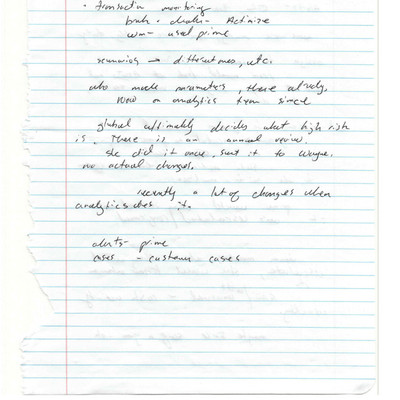 · transaction monitoring
bank + dealer - Actimize
wm - used prime
scenarios → different ones, etc.
who made parameters, there already.
now on analytics team since
global ultimately decides what high risk
is. There is an annual review.
she did it once, sent it to Wayne.
no actual changes.
recently a lot of changes when
analytics does it.
alerts - prime
cases - custom cases